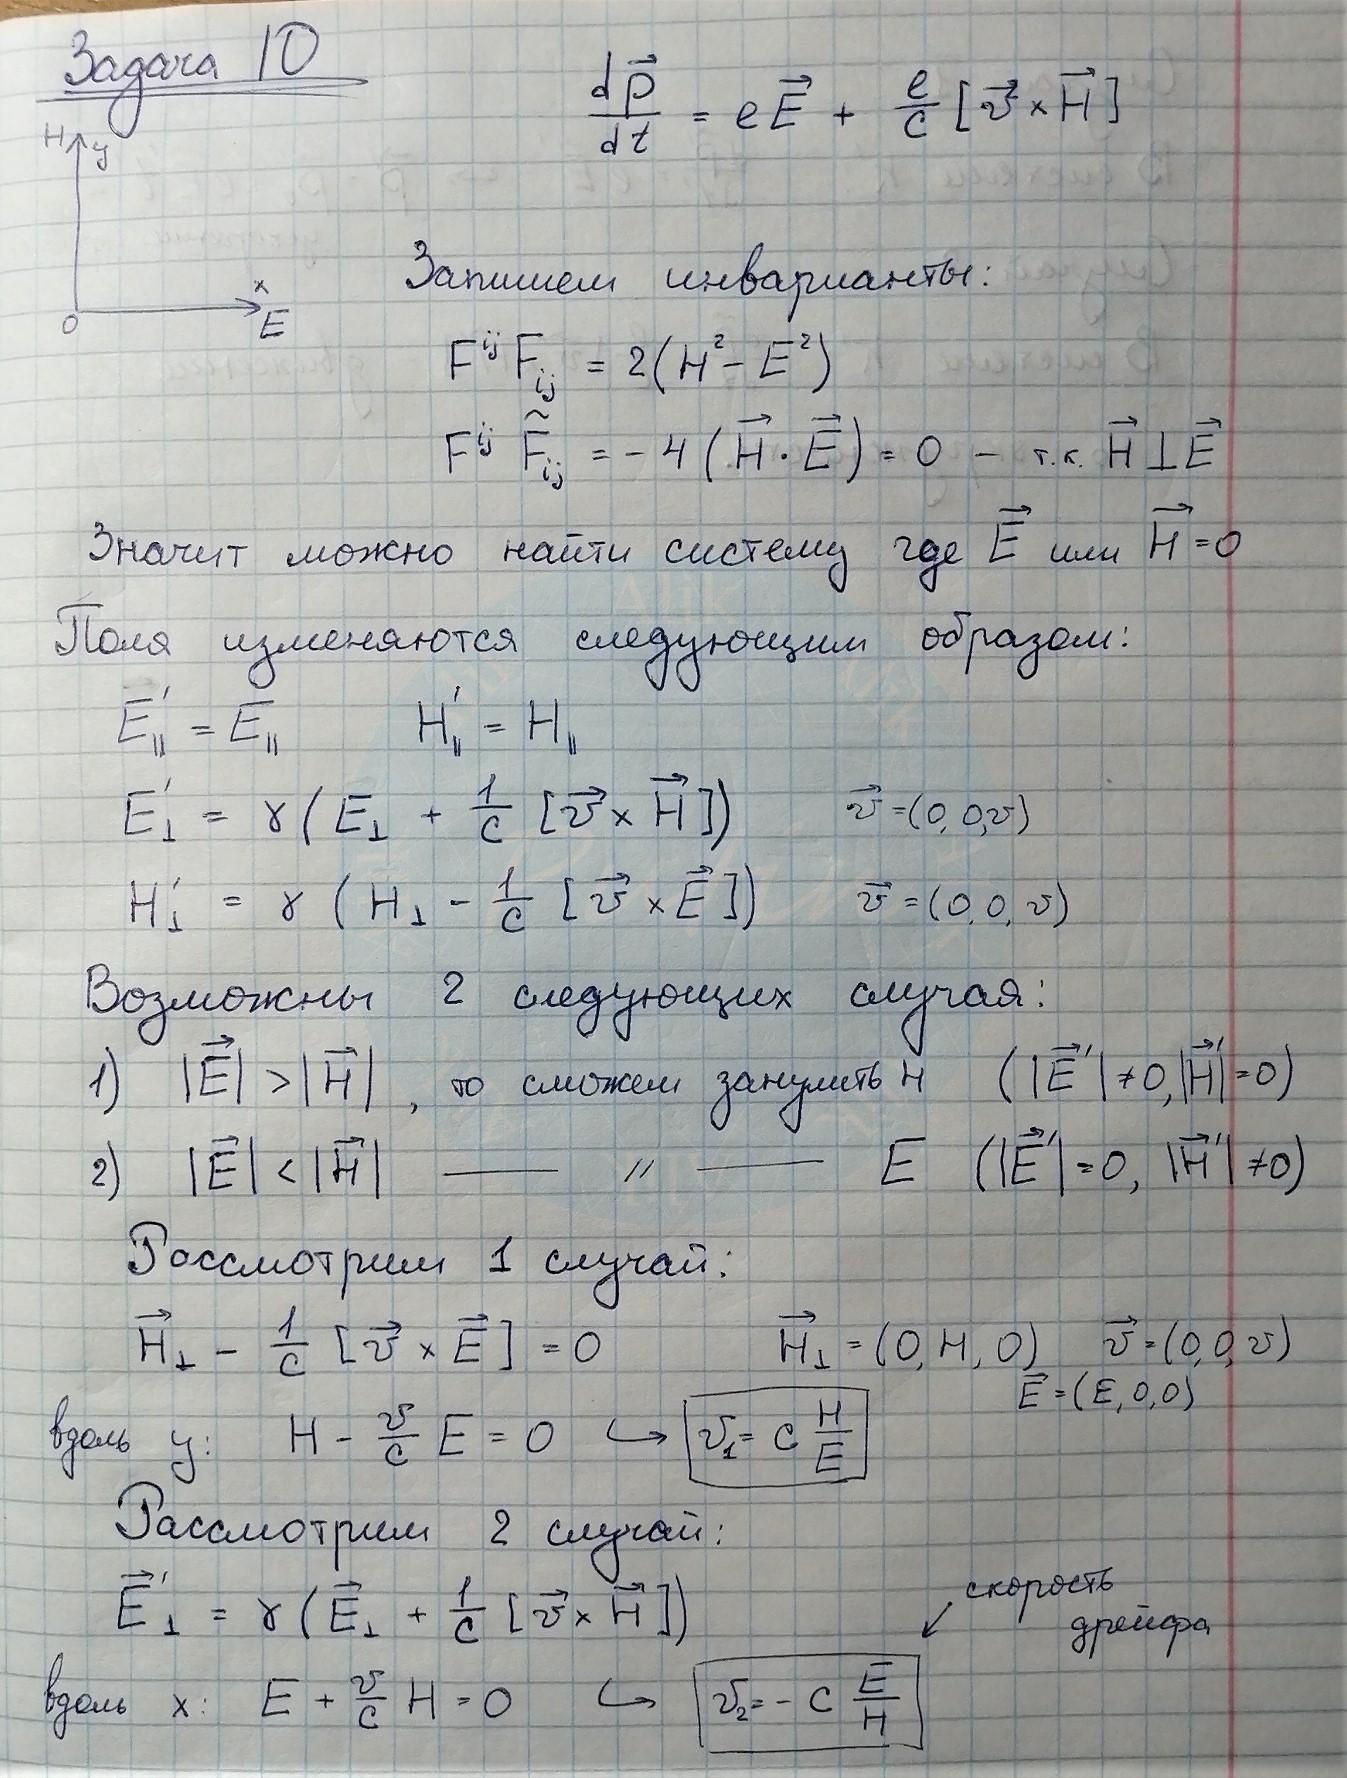 Задача 10
dp⃗/dt = eE⃗ + e/c [v⃗ × H⃗]
H y
x
0 E
Запишем инварианты:
F^{ij} F_{ij} = 2(H² − E²)
F^{ij} F̃_{ij} = − 4 (H⃗ · E⃗) = 0 − т.к. H⃗ ⊥ E⃗
Значит можно найти систему где E⃗ или H⃗ = 0
Поля изменяются следующим образом:
E'_{||} = E_{||} H'_{||} = H_{||}
E'_⊥ = γ (E_⊥ + 1/c [v⃗ × H⃗]) v⃗ = (0, 0, v)
H'_⊥ = γ (H_⊥ − 1/c [v⃗ × E⃗]) v⃗ = (0, 0, v)
Возможны 2 следующих случая:
1) |E⃗| > |H⃗|, то сможем занулить H (|E⃗'| ≠ 0, |H⃗'| = 0)
2) |E⃗| < |H⃗| —— // —— E (|E⃗'| = 0, |H⃗'| ≠ 0)
Рассмотрим 1 случай:
H⃗_⊥ − 1/c [v⃗ × E⃗] = 0 H⃗_⊥ = (0, H, 0) v⃗ = (0, 0, v)
E⃗ = (E, 0, 0)
вдоль y: H − v/c E = 0 ↪ v₁ = c H/E
Рассмотрим 2 случай:
E⃗'_⊥ = γ (E⃗_⊥ + 1/c [v⃗ × H⃗])
скорость
дрейфа
вдоль x: E + v/c H = 0 ↪ v₂ = − c E/H